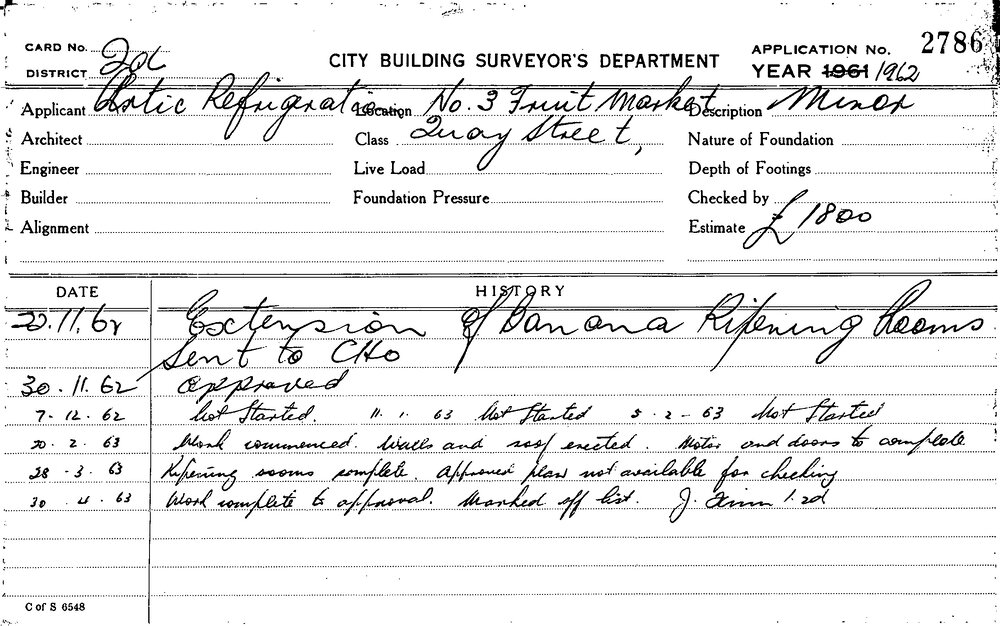 CARD No.
DISTRICT 2d
CITY BUILDING SURVEYOR'S DEPARTMENT
APPLICATION No. 2786
YEAR 1961/1962
Applicant Artic Refrigeration
Location No. 3 Fruit Market
Description Minor
Architect
Class Quay Street,
Nature of Foundation
Engineer
Live Load
Depth of Footings
Builder
Foundation Pressure
Checked by
Alignment
Estimate £1800
DATE HISTORY
20.11.62 Extension of Banana Ripening Rooms
Sent to CHO
30.11.62 approved
7.12.62 Not Started. 11.1.63 Not Started 5-2-63 Not Started
20.2.63 Work commenced. Walls and roof erected. Motor and doors to complete
28-3.63 Ripening rooms complete. Approved plan not available for checking
30.4.63 Work complete to approval. Marked off list. J.
C of S 6548